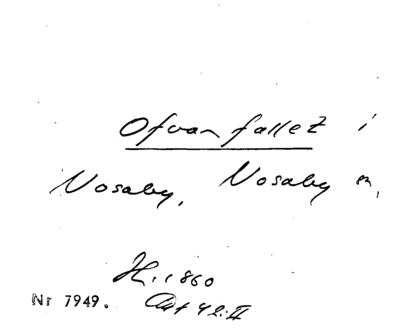 Ofvanfallet i
Nosaby, Nosaby sn,
H. 1860
Nr 7949. Ant 42:II